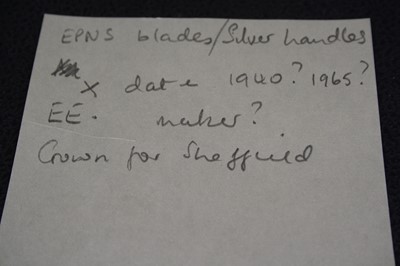 EPNS blades/Silver handles
x date 1940? 1965?
EE. maker?
Crown for Sheffield